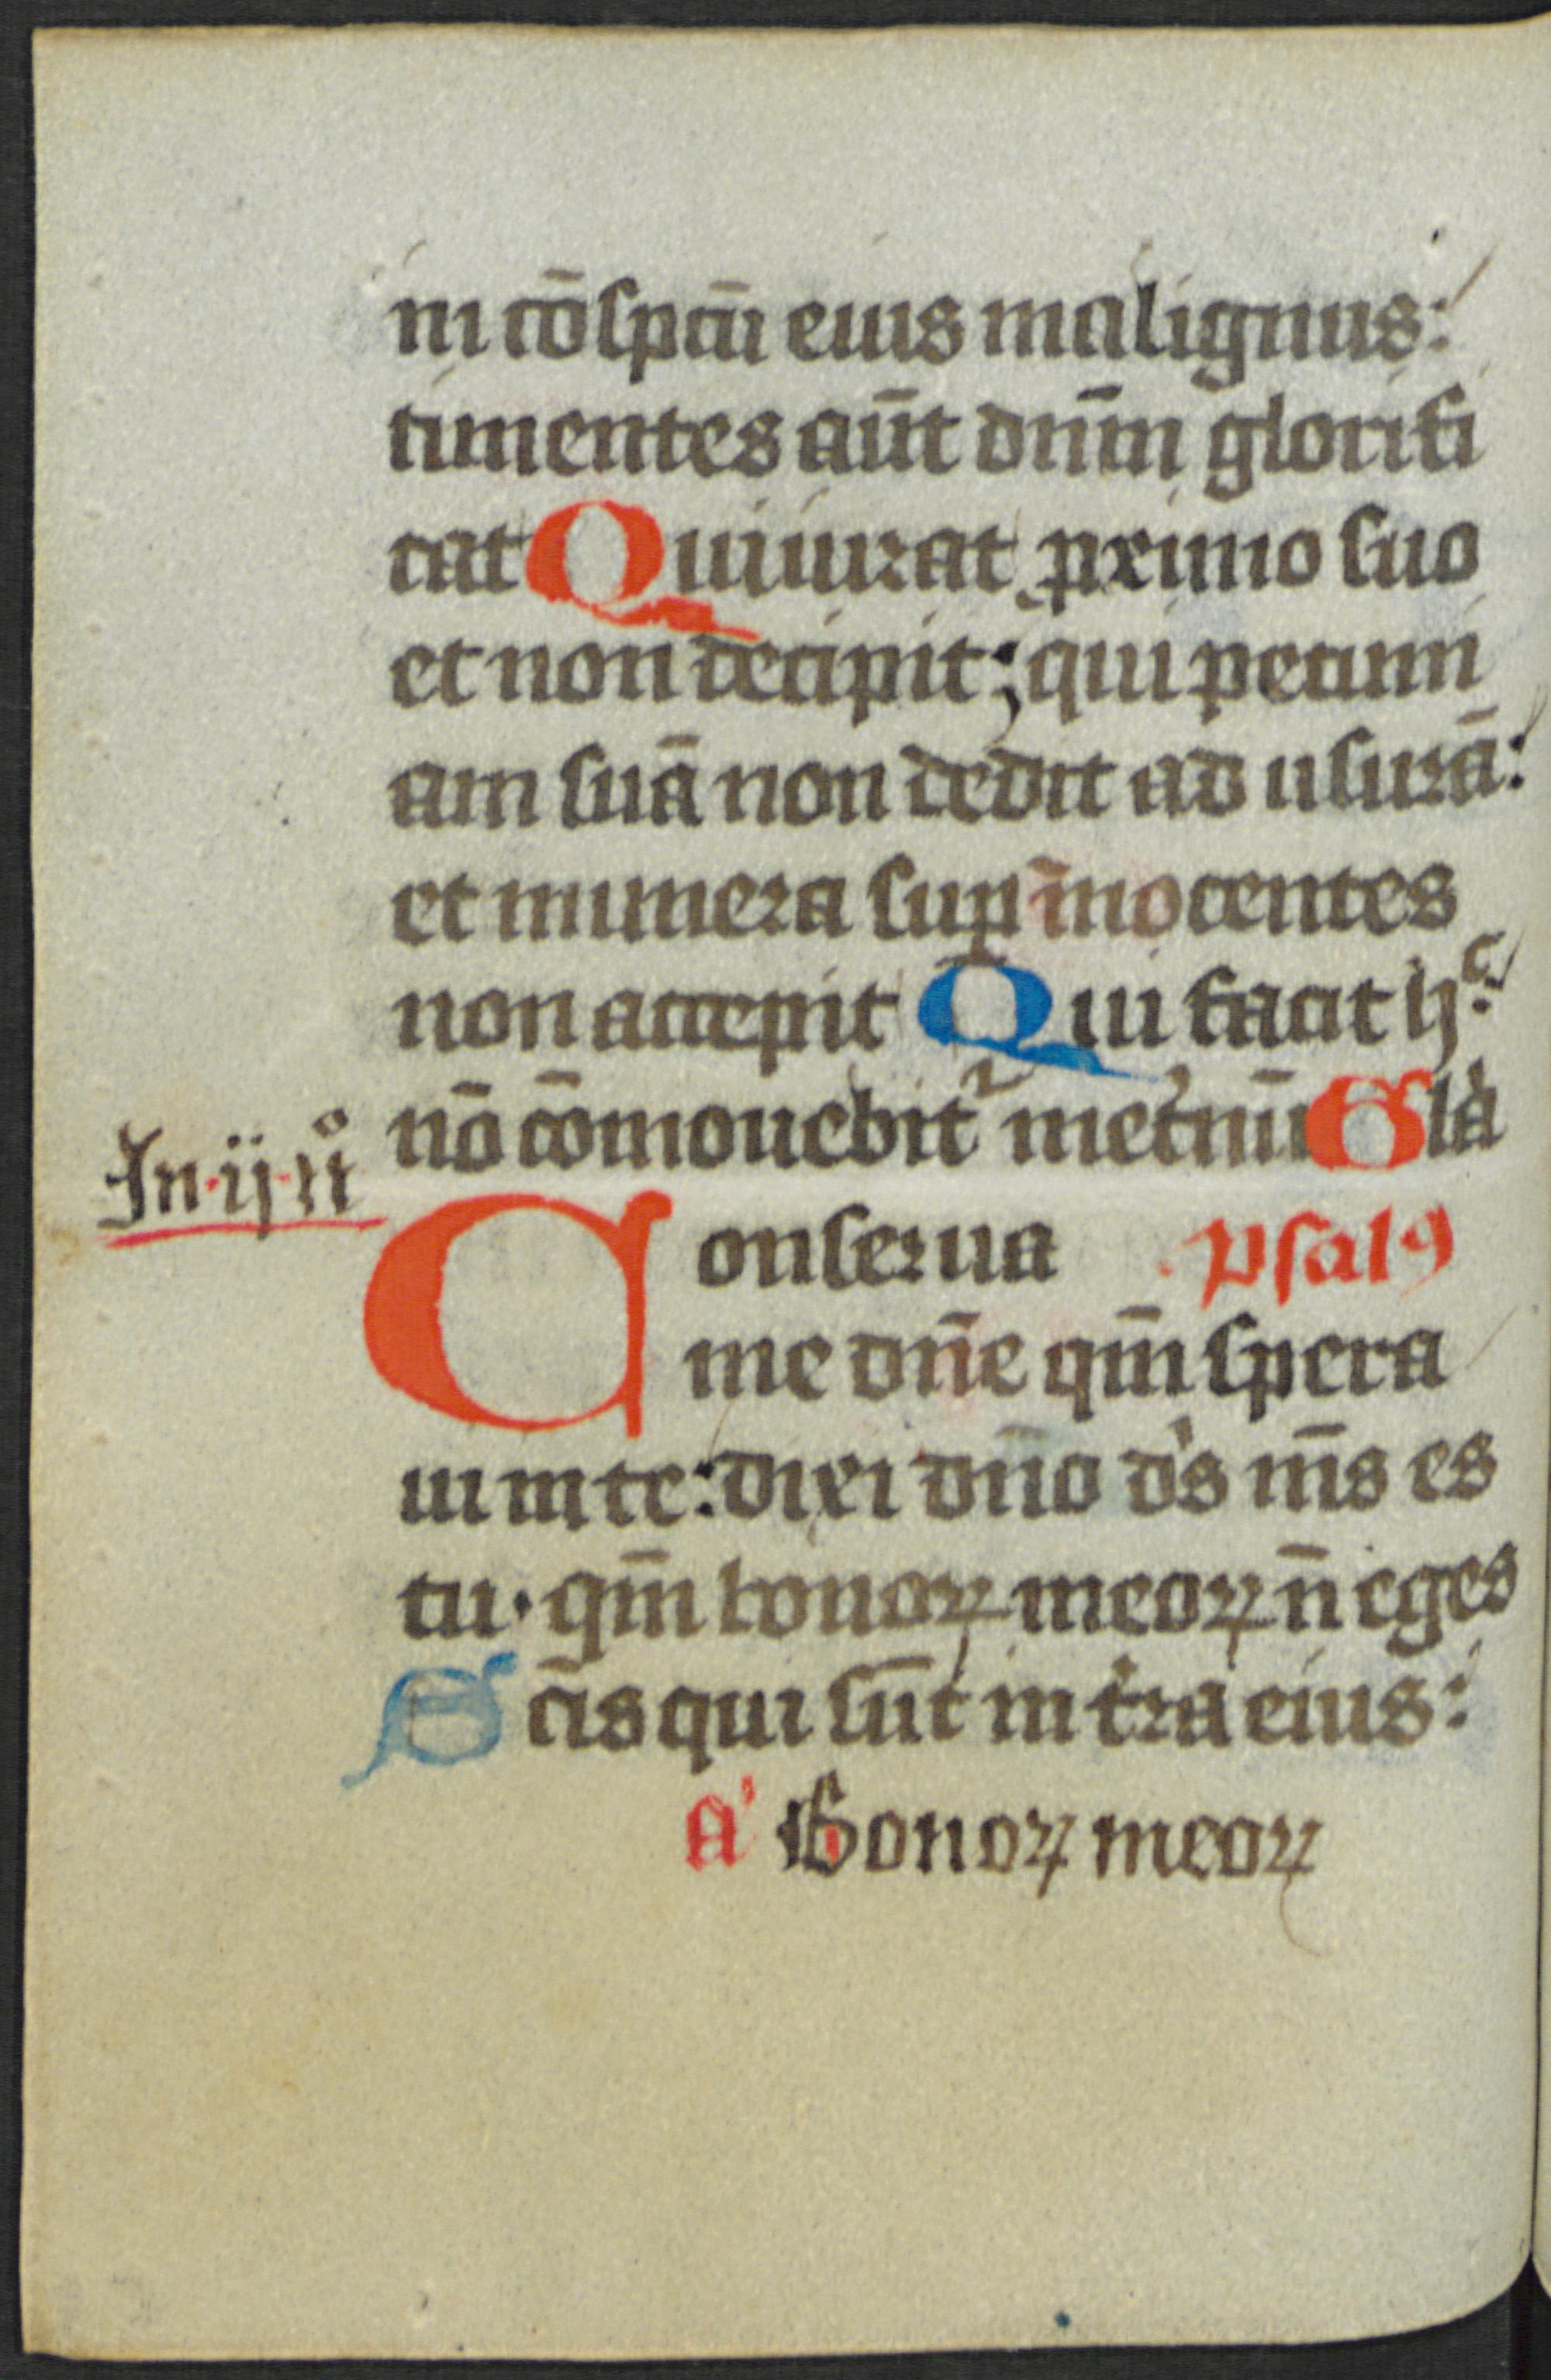 in cōspcū eius malignus:
timentes aūt dn̄m glorifi
cat Qui iurat ꝓximo suo
et non decipit; qui pecuni
am suā non dedit ad usurā:
et munera suꝑ īnocentes
non accepit Qui facit hͨ:
nō cōmouebit᷑ inet̓nū Gl̓a
In·ij·n̄º
Conserua psalꝯ
me dn̄e qm̄ spera
ui in te: dixi dn̄o d̓s m̄s es
tu· qm̄ bonoꝝ meoꝝ n̄ eges
Sc̄is qui sūt in t̓ra eius:
A' Bonoꝝ meoꝝ